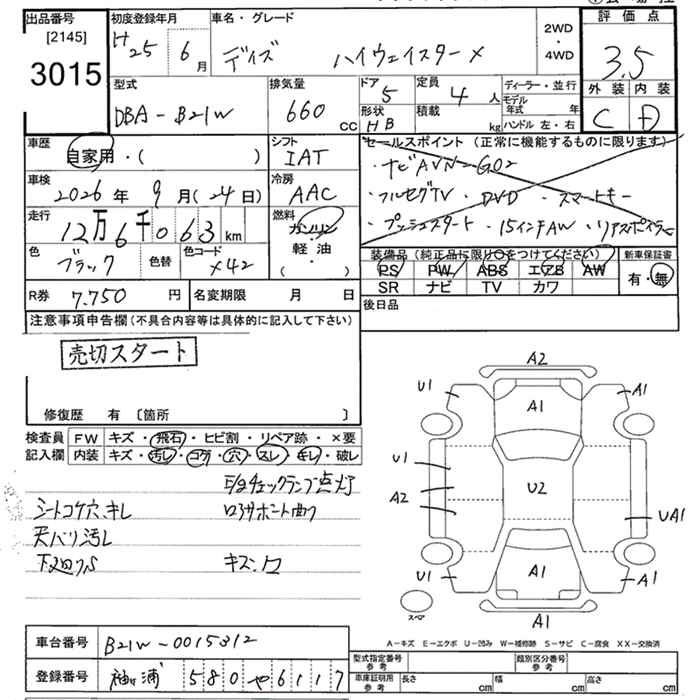 出品番号
[2145]
3015
初度登録年月
H25年6月
車名・グレード
デイズ ハイウェイスターX
2WD
・
4WD
評価点
3.5
外装 内装
C D
型式
DBA-B21W
排気量
660 CC
ドア
5
形状
HB
定員
4人
積載
kg
ディーラー・並行
モデル年式 年
ハンドル 左・右
車歴
自家用・( )
シフト
IAT
車検
2026年9月(24日)
冷房
AAC
走行
12万6千063km
燃料
ガソリン
軽油
( )
色
ブラック
色替
色コード
X42
R券
7.750円
名変期限 月 日
セールスポイント(正常に機能するものに限ります)
・ナビAVN-G02
・フルセグTV ・DVD ・スマートキー
・プッシュスタート ・15インチAW ・リアスポイラー
装備品(純正品に限り○をつけてください)
PS PW ABS エアB AW
SR ナビ TV カワ
新車保証書
有・無
後日品
注意事項申告欄(不具合内容等は具体的に記入して下さい)
売切スタート
修復歴 有 〔箇所 〕
検査員記入欄
FW キズ・飛石・ヒビ割・リペア跡・×要
内装 キズ・汚レ・コゲ・穴・スレ・キレ・破レ
E/gチェックランプ点灯
シートコゲ穴、キレ
ロアサポート曲り
天バリ汚レ
下廻りS
キズ・凹
A2
U1
A1
A1
U1
A2
U2
UA1
U1
A1
A1
A1
スペア
A-キズ E-エクボ U-凹み W-補修跡 S-サビ C-腐食 XX-交換済
車台番号
B21W-0015312
登録番号
袖ヶ浦 580 や 6117
型式指定番号 参考
類別区分番号 参考
車庫証明用 参考
長さ cm
幅 cm
高さ cm